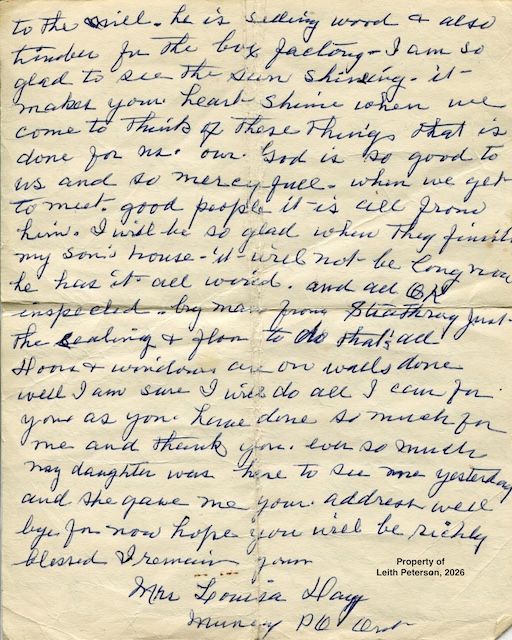 to the mill. he is selling wood & also
timber for the box factory - I am so
glad to see the sun shining - it
makes your heart shine when we
come to think of these things that is
done for us. our God is so good to
us and so mercyfull. when we get
to meet good people it is all from
him. I will be so glad when they finish
my son's house - it will not be long now
he has it all wired. and all OK
inspected. by man from Strathroy just
the sealing & floor to do that's all
doors & windows are on walls done
well I am sure I will do all I can for
you as you have done so much for
me and thank you ever so much
my daughter was here to see me yesterday
and she gave me your address well
bye for now hope you will be richly
blessed I remain yours
Mrs Louisa
Muncey PO Ont
Property of
Leith Peterson, 2026